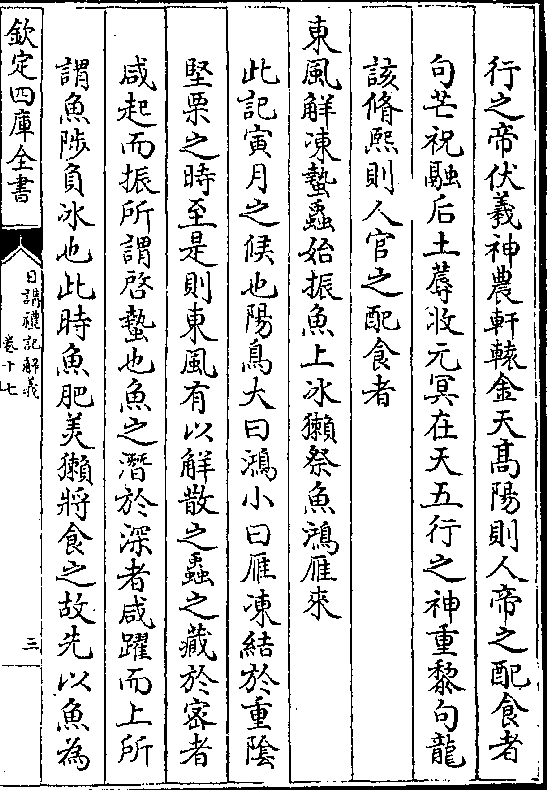 行之帝伏羲神農軒轅金天髙陽則人帝之配食者
句芒祝融后土蓐收元冥在天五行之神重黎句龍
該脩熈則人官之配食者
東風解凍蟄蟲始振魚上冰獺祭魚鴻雁來
此記寅月之候也陽鳥大曰鴻小曰雁凍結於重隂
堅栗之時至是則東風有以解散之蟲之藏於宻者
咸起而振所謂啓蟄也魚之潛於深者咸躍而上所
謂魚陟負冰也此時魚肥美獺將食之故先以魚為
欽定四庫全書
日講禮記解義
卷十七
三